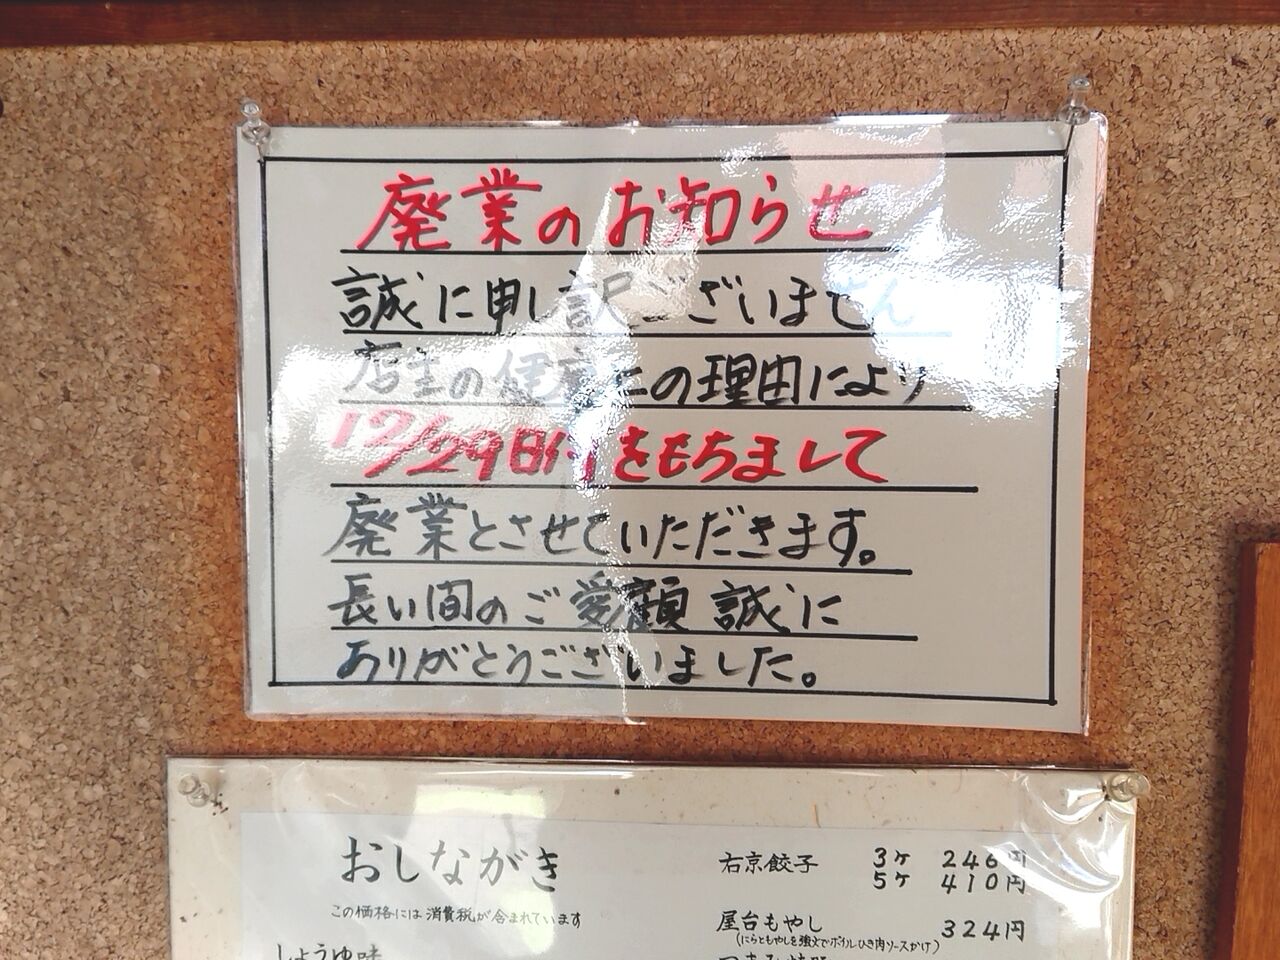 廃業のお知らせ
誠に申し訳ございません
店主の健康上の理由により
12/29日付をもちまして
廃業とさせていただきます。
長い間のご愛顧誠に
ありがとうございました。
おしながき
この価格には消費税が含まれています
しょうゆ味
右京餃子 3ケ 246円
5ケ 410円
屋台もやし 324円
(にらともやしを強火でボイルひき肉ソースかけ)